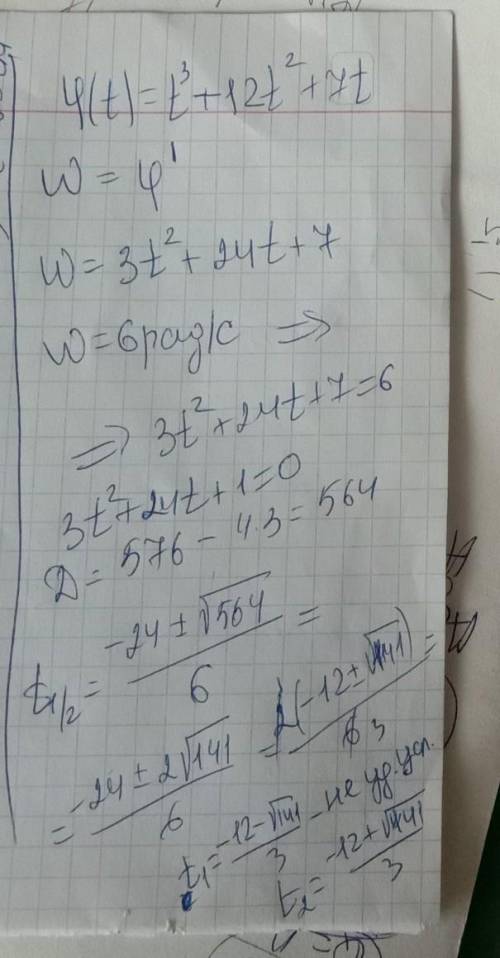 φ(t) = t³ + 12t² + 7t
ω = φ'
ω = 3t² + 24t + 7
ω = 6рад/с ⇒
⇒ 3t² + 24t + 7 = 6
3t² + 24t + 1 = 0
D = 576 - 4·3 = 564
t₁/₂ = (-24 ± √564)/6 =
= (-24 ± 2√141)/6 = 2(-12 ± √141)/6 3 =
t₁ = (-12 - √141)/3 - не уд. усл.
t₂ = (-12 + √141)/3